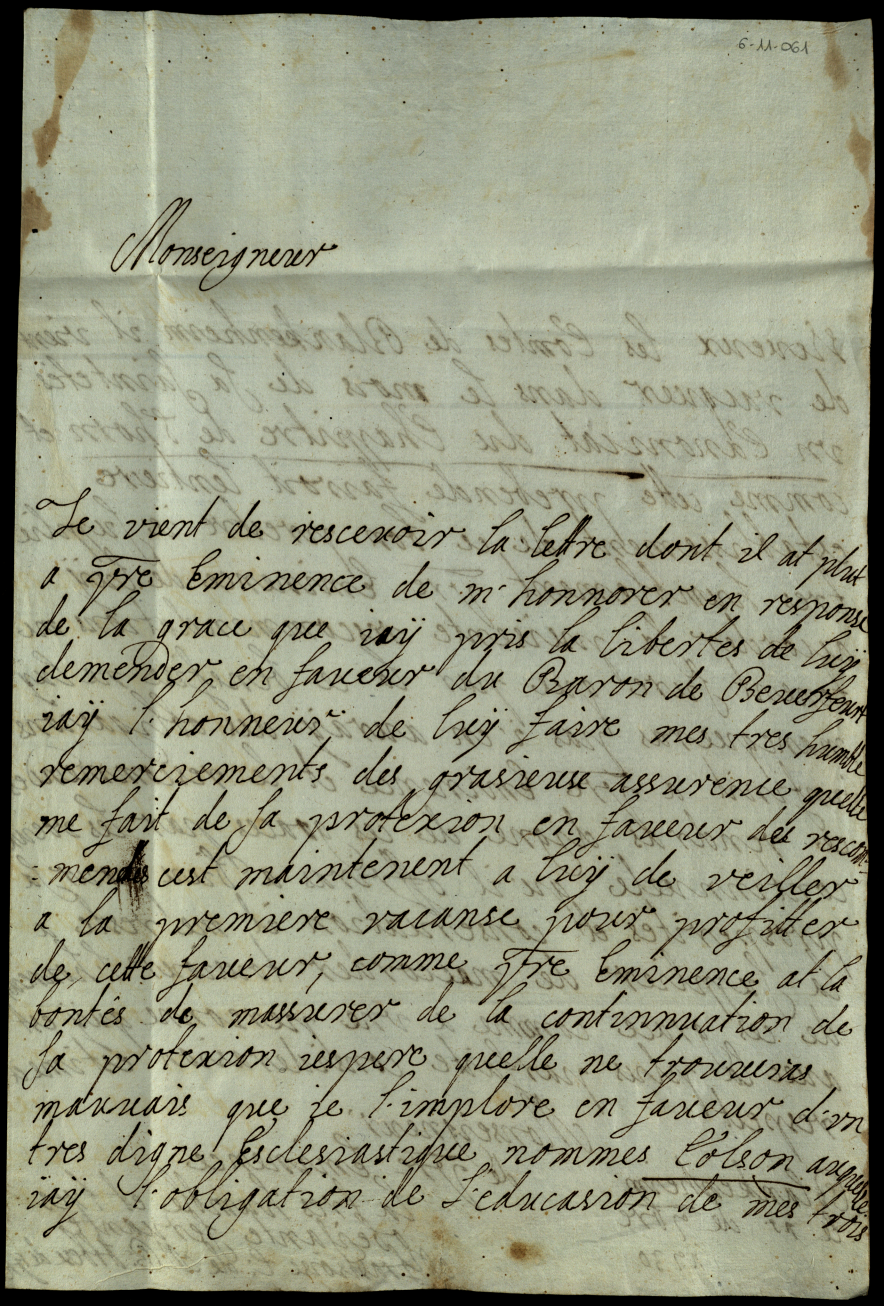 6-11-061
Monseigneur
Je vient de rescevoir la lettre dont il at plut
a vre Eminence de m'honnorer en response
de la grace que iaÿ pris la libertes de luÿ
demender en faveur du Baron de
iaÿ l'honneur de luÿ faire mes tres humble
remerciements des grasieuse assurence quelle
me fait de sa protexion en faveur du rescom-
=mendes cest maintenent a luÿ de veiller
a la premiere vacanse pour profitter
de cette faveur, comme vre Eminence at la
bontés de massurer de la continnuation de
sa protexion iespere quelle ne trouveras
mauvais que ie l'implore en faveur d'vn
tres digne Esclesiastique nommes Colson auquelle
iaÿ l'obligation de l'educasion de mes trois